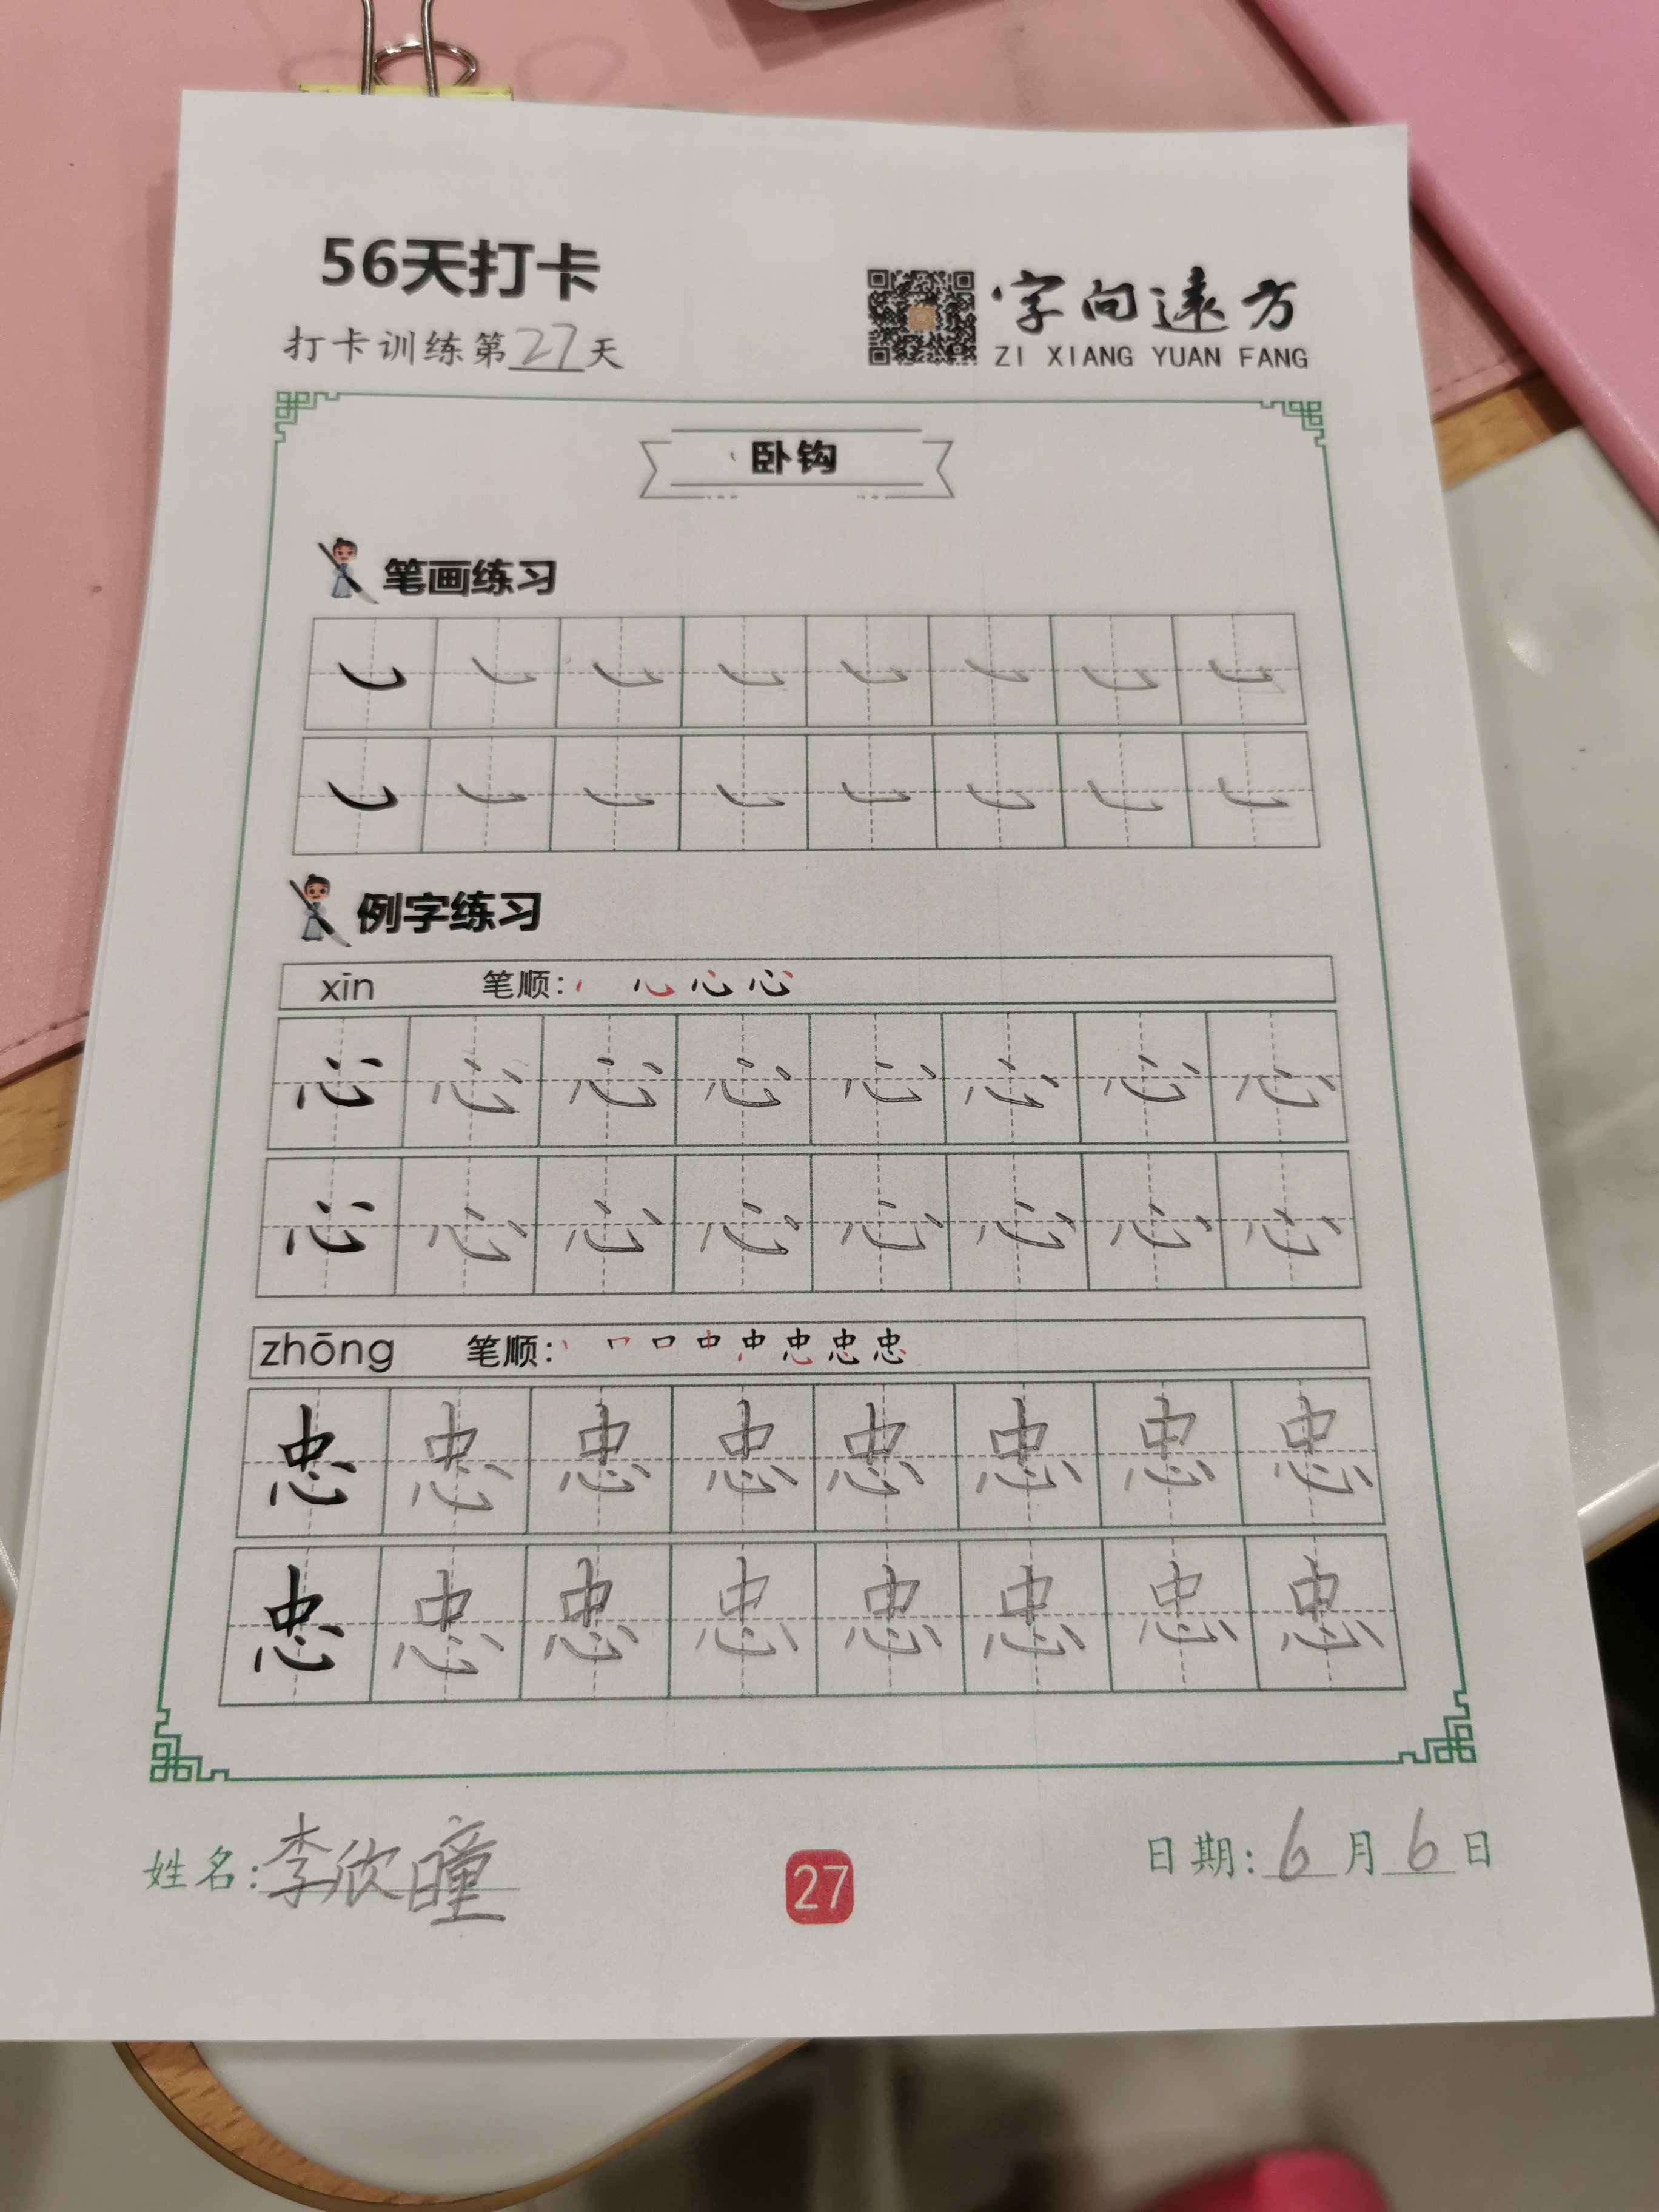 56天打卡
打卡训练第27天
字向遠方
ZI XIANG YUAN FANG
卧钩
笔画练习
㇃ ㇃ ㇃ ㇃ ㇃ ㇃ ㇃ ㇃
㇃ ㇃ ㇃ ㇃ ㇃ ㇃ ㇃ ㇃
例字练习
xīn 笔顺: 心
心 心 心 心 心 心 心 心
心 心 心 心 心 心 心 心
zhōng 笔顺: 丨 𠃍 口 中 忠 忠 忠
忠 忠 忠 忠 忠 忠 忠 忠
忠 忠 忠 忠 忠 忠 忠 忠
姓名:李欣曈
27
日期:6月6日